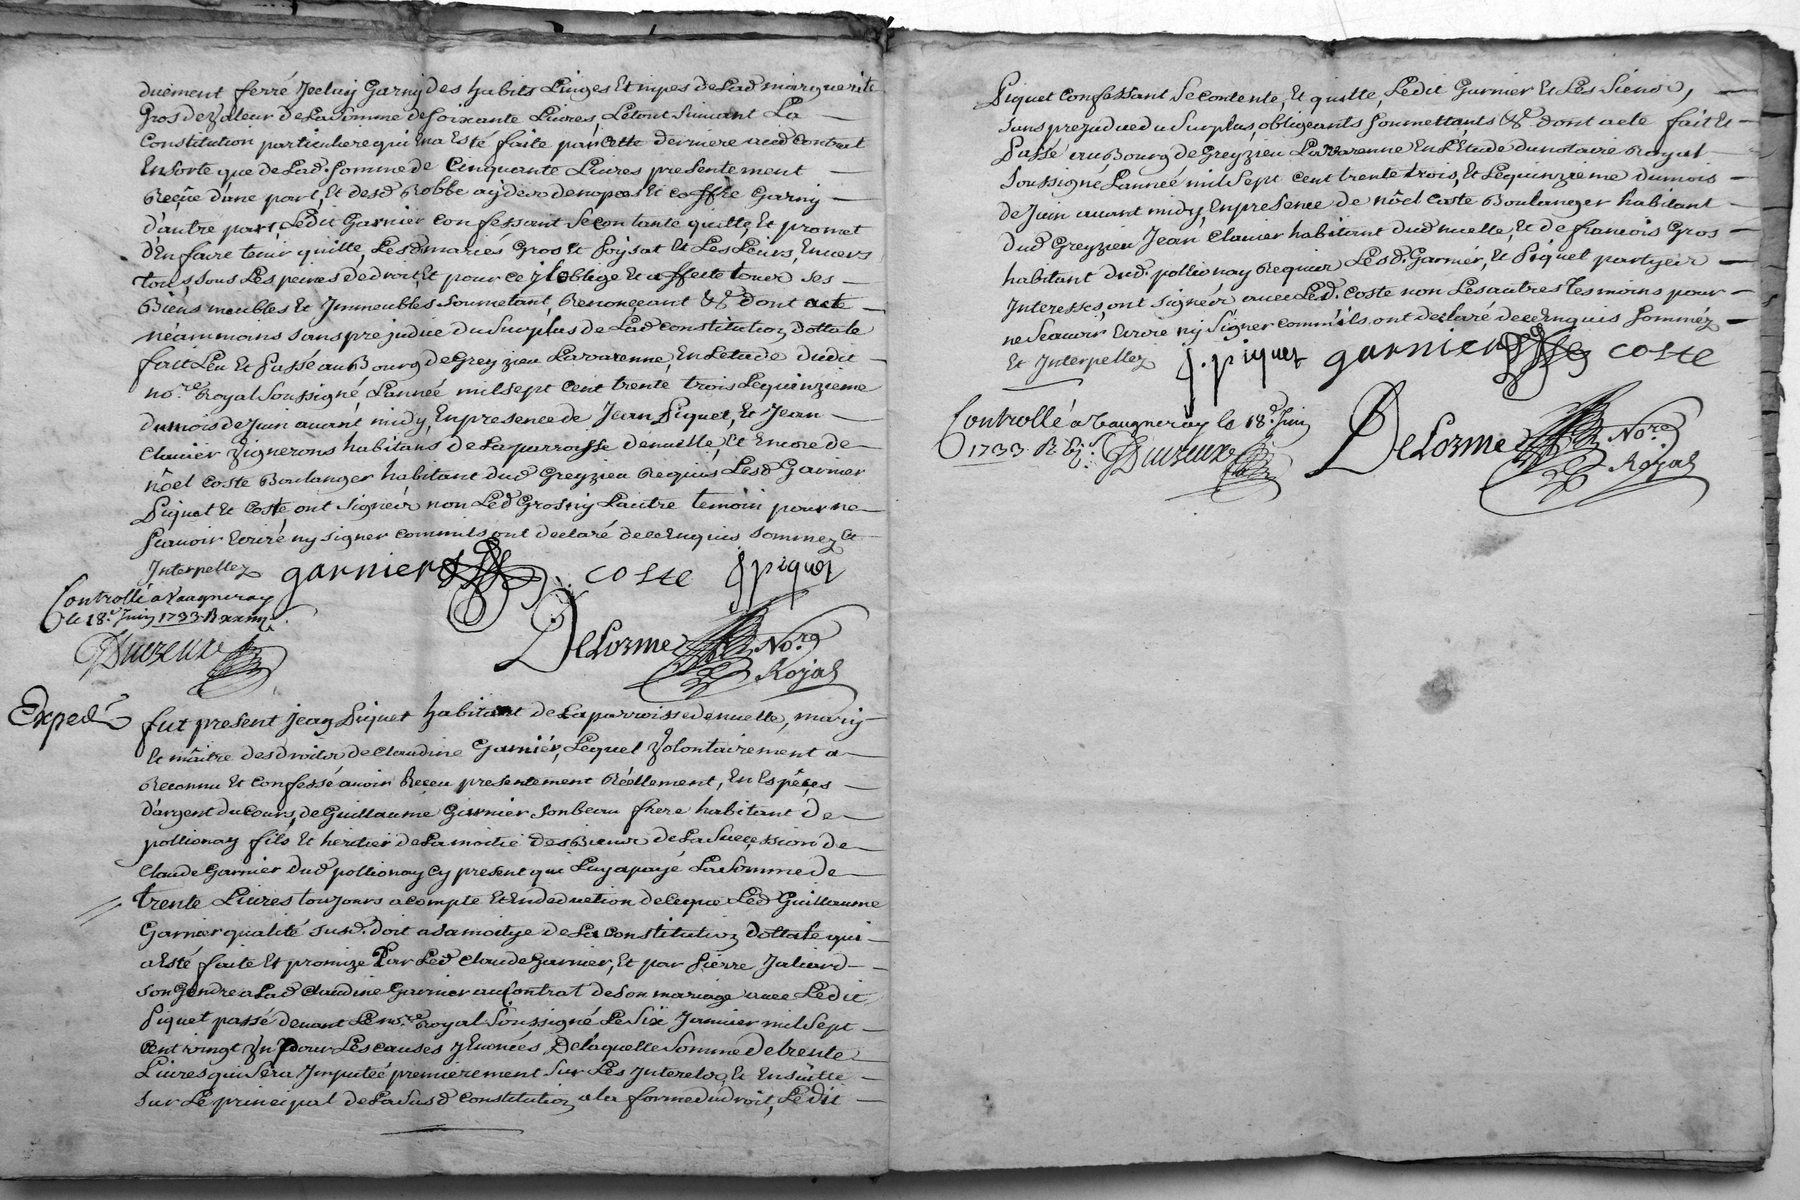 duëment ferré Jceluy Garny des habits Linges Et nipes de Lad marguerite
Gros de Valeur de La somme de soixante Livres, Le tout suivant La
Constitution particuliere qui En a Esté faite par cette derniere aud contrat
Ensorte que de Lad. somme de Cinquante Livres presentement
Reçûe d'une part, Et desd Robbe ay dero de nopces Et coffre Garny
d'autre part, Ledit Garnier confessant se contante quitte, Et promet
d'En faire tenir quitte, Lesd mariés Gros Et soysat Et Les Leurs, Envers
tous, sous Les peines de droit, Et pour ce jl oblige Et affecte tous ses
Biens meubles Et Jmmeubles soumetant, Renonçeant &c dont acte
néammoins sans prejudice du surplus de Lad constitution dottale
fait Leu Et passé au Bourg de Greyzieu Lavarenne, En Letude dudit
no.re Royal soussigné, L'année mil sept cent trente trois Le quinzieme
du mois de Juin avant midy, En presence de Jean Piquet, Et Jean
Clavier Vignerons habitans de La parroisse de vuelle, Et Encore de
nôel Coste Boulanger habitant dud Greyzieu Requis Lesd Garnier
Piquet Et Coste, ont signéz non Led Gros ny L'autre temoin pour ne
scavoir Ecrire ny signer comm'ils ont declaré de ce Enquis sommez Et
Jnterpellez garnier coste J piquet
Controllé a Vaugneray
le 18.e Juin 1733 R
DeLorme No.re
Royal
Expedé
fut present jean Piquet habitant de La parroisse de vuelle, mary
Et mâitre des droits de Claudine Garnier, Lequel Volontairement a
Reconnu Et confessé avoir Reçeu presentement Réellement, En Espêçes
d'argent du cours, de Guillaume Garnier son beau frere habitant de
pollionay fils Et heritier de La moitié des Biens de La succession de
Claude Garnier dud pollionay Cy present qui Luy a payé La somme de
trente Livres toujours a compte Et En deduction de ce que Led Guillaume
Garnier qualité susd. doit a sa moitye de La constitution dottale qui
a Esté faite Et promize Par Led Claude Garnier, Et par Pierre Juliard
son Gendre a Lad Claudine Garnier au Contrat de son mariage avec Ledit
Piquet passé devant Le no.re Royal soussigné Le six Janvier mil sept
Cent vingt Vn Pour Les causes y Enonées De laquelle somme de trente
Livres qui sera Jmputeé premierement sur Les Jnterets, Et Ensuitte
sur Le principal de La susd constitution a la forme du droit, Ledit
Piquet confessant se contente, Et quitte, Ledit Garnier Et Les siens,
sans prejudice du surplus, obligeants soumettants &c dont acte fait Et
Passé au Bourg de Greyzieu Lavarenne En L'Etude du notaire Royal
soussigné L'année mil sept cent trente trois, Et Le quinzieme du mois
de Juin avant midy, En presence de nôel Coste Boulanger habitant
dud Greyzieu Jean Clavier habitant dud vuelle, Et de francois Gros
habitant dud. pollionay Requis Lesd. Garnier, Et Piquet partyes
Jnteressés, ont signéz avec Led. Coste non Les autres temoins pour
ne scavoir Ecrire ny signer comm'ils ont declaré de ce Enquis sommez
Et Jnterpellez J. piquet garnier coste
Controllé a Vaugneray le 18.e Juin
1733 R
DeLorme No.re
Royal